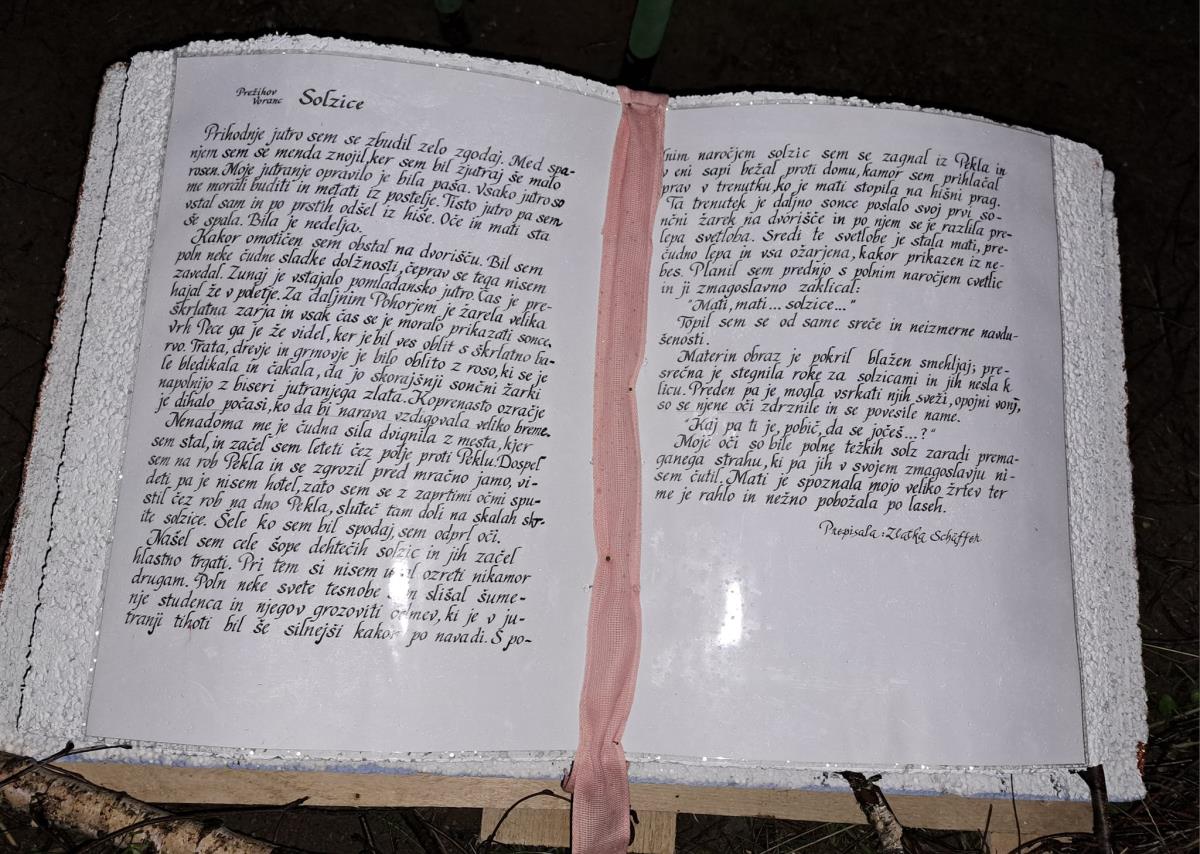 Prežihov
Voranc
Solzice
Prihodnje jutro sem se zbudil zelo zgodaj. Med spa-
njem sem se menda znojil, ker sem bil zjutraj še malo
rosen. Moje jutranje opravilo je bila paša. Vsako jutro so
me morali buditi in metati iz postelje. Tisto jutro pa sem
vstal sam in po prstih odšel iz hiše. Oče in mati sta
še spala. Bila je nedelja.
Kakor omotičen sem obstal na dvorišču. Bil sem
poln neke čudne sladke dolžnosti, čeprav se tega nisem
zavedal. Zunaj je vstajalo pomladansko jutro. Čas je pre-
hajal že v poletje. Za daljnim Pohorjem je žarela velika
škrlatna zarja in vsak čas se je moralo prikazati sonce,
vrh Pece ga je že videl, ker je bil ves oblit s škrlatno ba-
rvo. Trata, drevje in grmovje je bilo oblito z roso, ki se je
le bledikala in čakala, da jo skorajšnji sončni žarki
napolnijo z biseri jutranjega zlata. Koprenasto ozračje
je dihalo počasi, ko da bi narava vzdigovala veliko breme.
Nenadoma me je čudna sila dvignila z mesta, kjer
sem stal, in začel sem leteti čez polje proti Peklu. Dospel
sem na rob Pekla in se zgrozil pred mračno jamo, vi-
deti pa je nisem hotel, zato sem se z zaprtimi očmi spu-
stil čez rob na dno Pekla, sluteč tam doli na skalah skr-
ite solzice. Šele ko sem bil spodaj, sem odprl oči.
Našel sem cele šope dehtečih solzic in jih začel
hlastno trgati. Pri tem si nisem ozreti nikamor
drugam. Poln neke svete tesnobe sem slišal šume-
nje studenca in njegov grozoviti odmev, ki je v ju-
tranji tihoti bil še silnejši kakor po navadi. S po-
lnim naročjem solzic sem se zagnal iz Pekla in
v eni sapi bežal proti domu, kamor sem prihlačal
prav v trenutku, ko je mati stopila na hišni prag.
Ta trenutek je daljno sonce poslalo svoj prvi so-
nčni žarek na dvorišče in po njem se je razlila pre-
lepa svetloba. Sredi te svetlobe je stala mati, pre-
čudno lepa in vsa ožarjena, kakor prikazen iz ne-
bes. Planil sem prednjo s polnim naročjem cvetlic
in ji zmagoslavno zaklical:
"Mati, mati... solzice..."
Topil sem se od same sreče in neizmerne navdu-
šenosti.
Materin obraz je pokril blažen smehljaj; pre-
srečna je stegnila roke za solzicami in jih nesla k
licu. Preden pa je mogla vsrkati njih sveži, opojni vonj,
so se njene oči zdrznile in se povesile name.
"Kaj pa ti je, pobič, da se jočeš...?"
Moje oči so bile polne težkih solz zaradi prema-
ganega strahu, ki pa jih v svojem zmagoslavju ni-
sem čutil. Mati je spoznala mojo veliko žrtev ter
me je rahlo in nežno pobožala po laseh.
Prepisala: Zlatka Schäffer